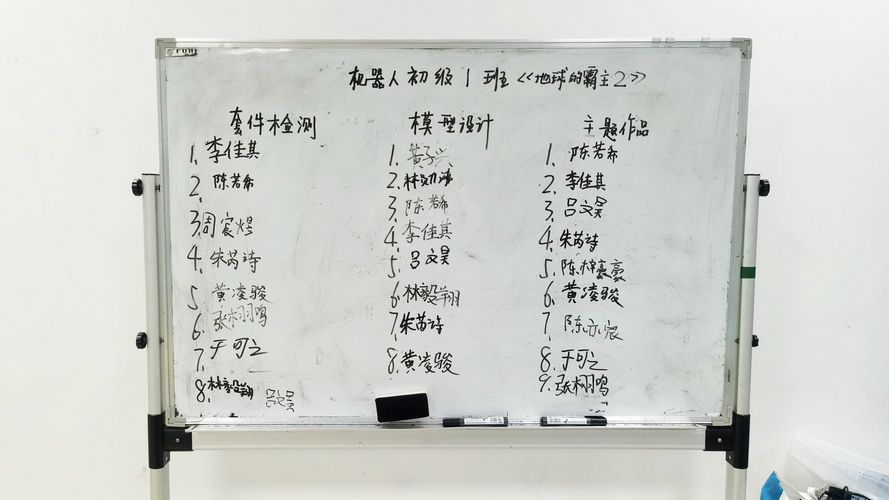 机器人初级1班《地球的霸主2》
套件检测
1. 李佳其
2. 陈若希
3. 周宸煜
4. 朱芮诗
5. 黄凌骏
6. 张栩鸣
7. 于可之
8. 林毅翔 吕文昊
模型设计
1. 黄子兴
2. 林
3. 陈若希
4. 李佳其
5. 吕文昊
6. 林毅翔
7. 朱芮诗
8. 黄凌骏
主题作品
1. 陈若希
2. 李佳其
3. 吕文昊
4. 朱芮诗
5. 陈梓豪
6. 黄凌骏
7. 陈亦宸
8. 于可之
9. 张栩鸣